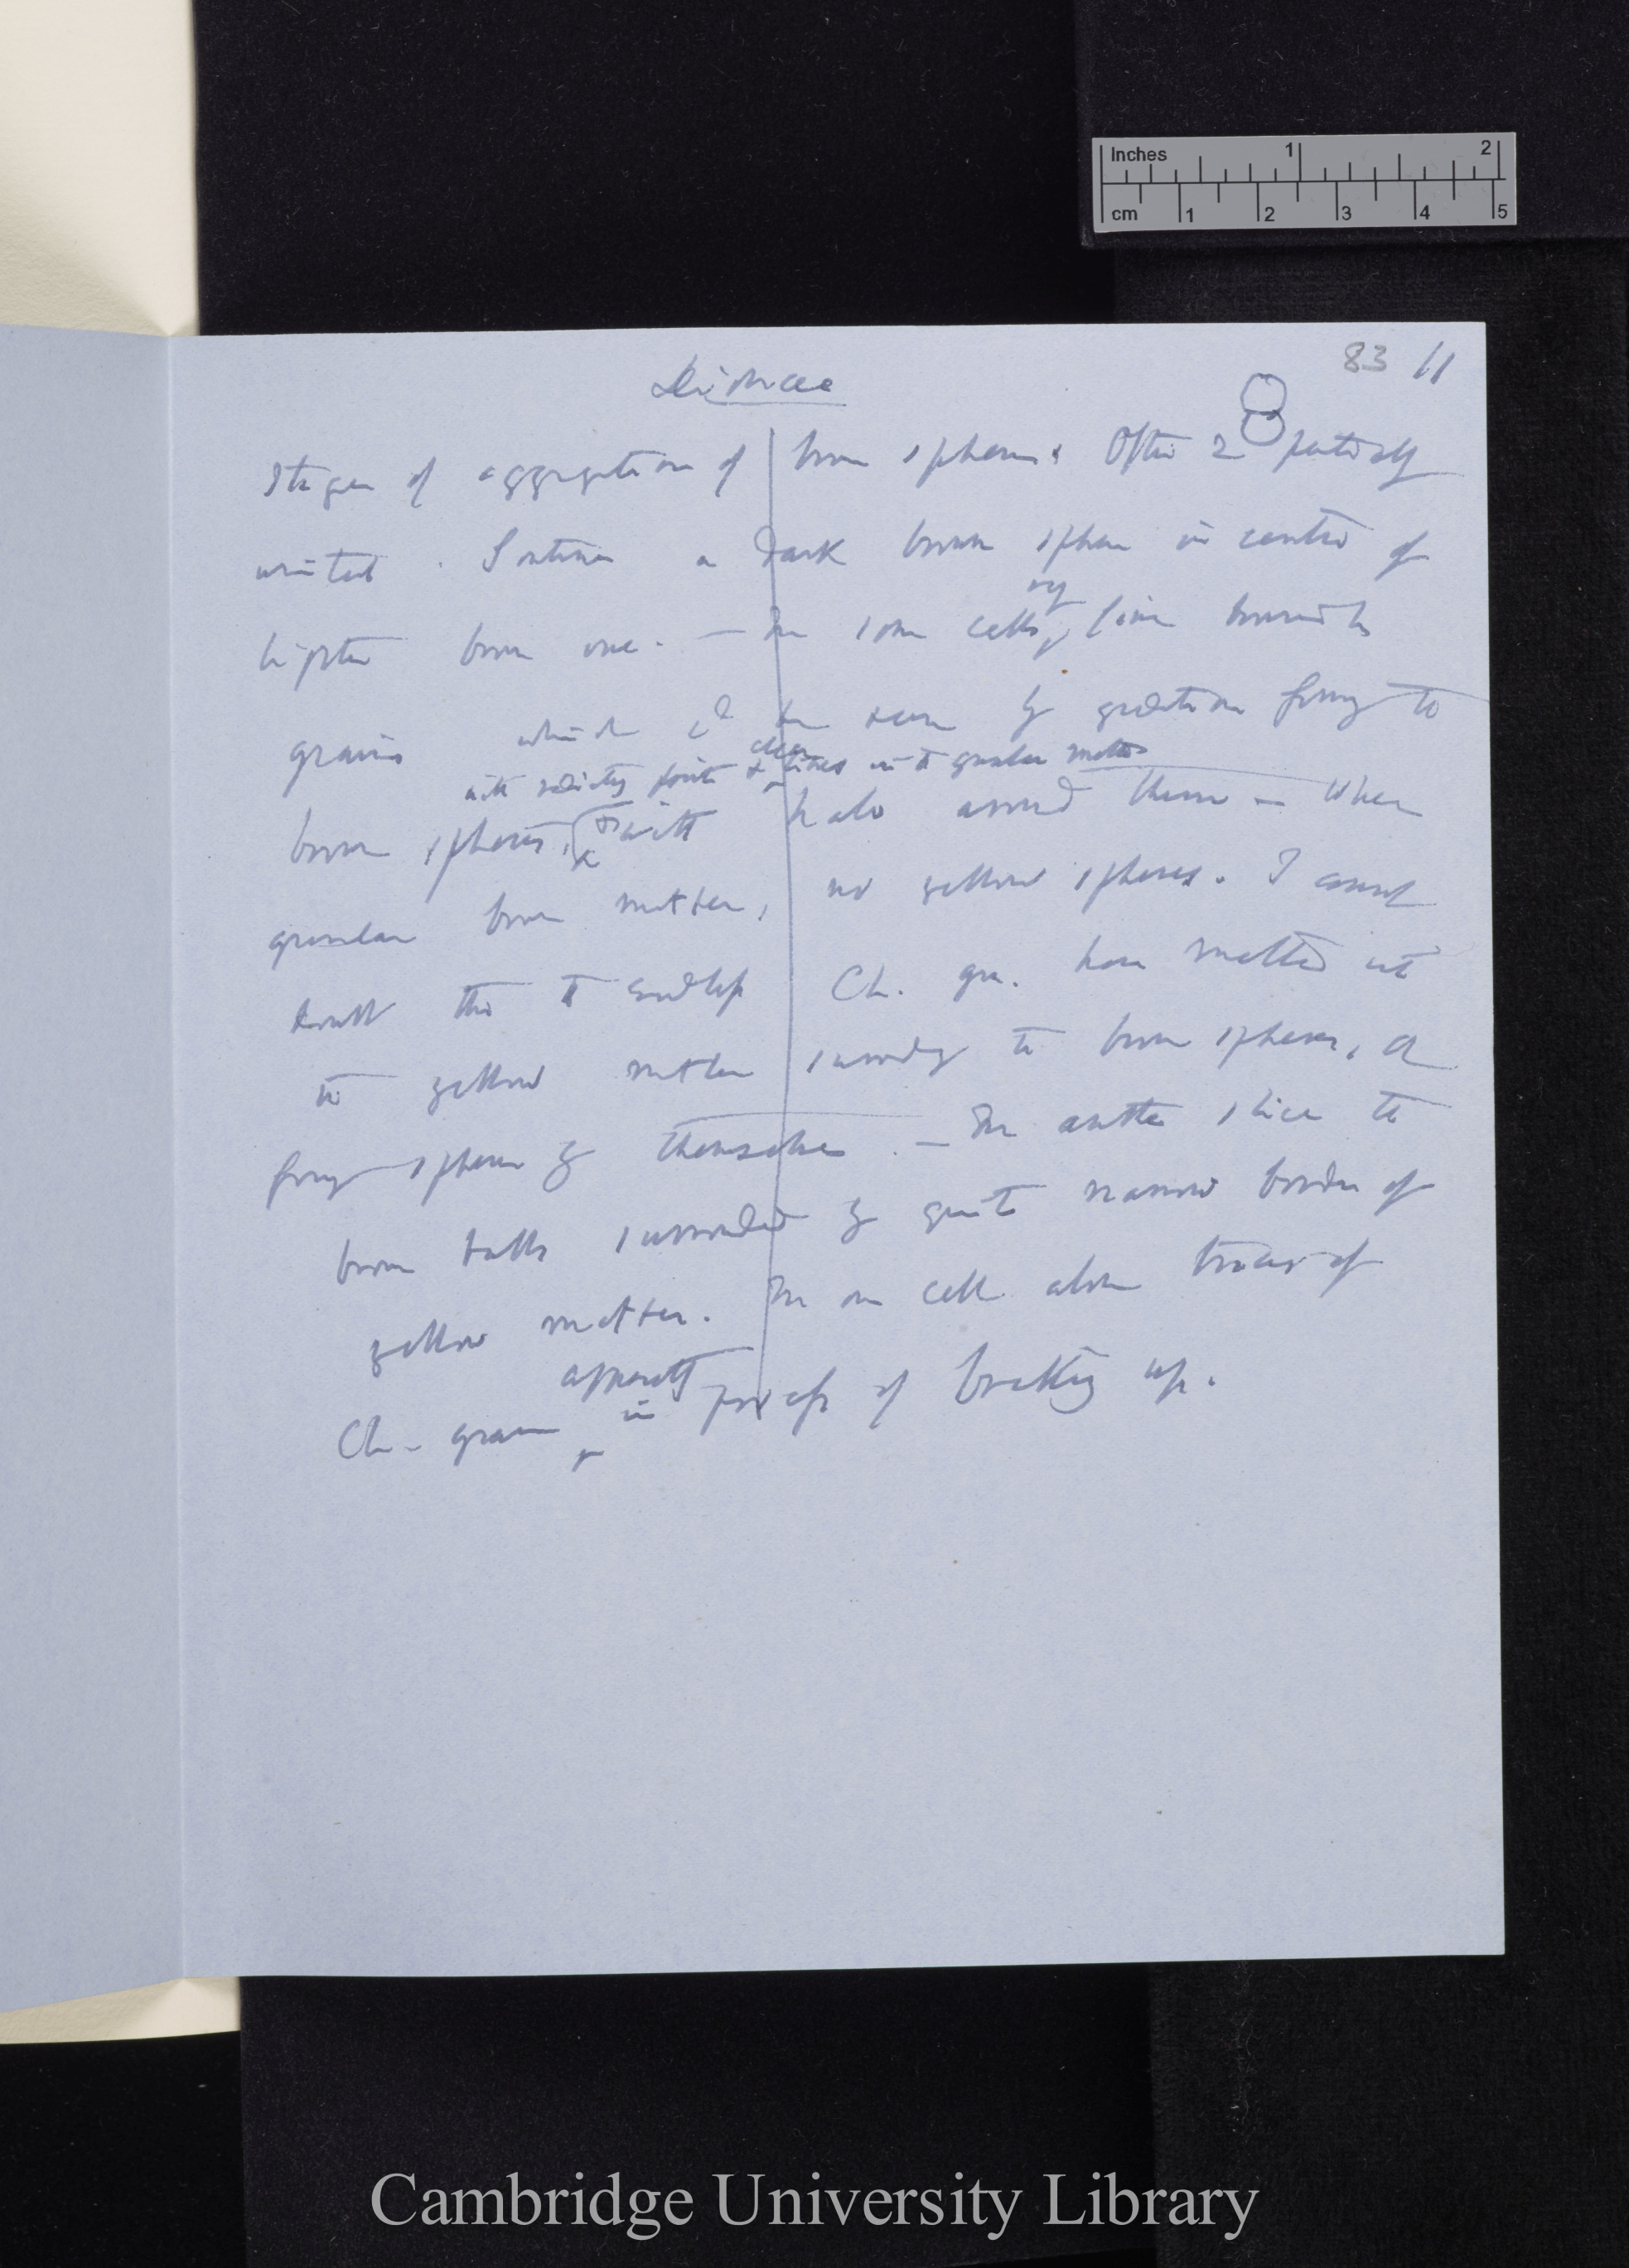 Inches 1 2
cm 1 2 3 4 5
83 11
Stages of aggregation of brown spheres Often 2 partially
united. Sometimes a dark brown sphere in centre of
lighter brown one. — In some cells, fine brownish
grains which cd be seen by gradation forming the
with radiating points & clear lines in the granular matter
brown spheres, with halo around them — When
granular brown matter, no yellow spheres. I cannot
doubt that the Ch. gr. have melted into
the yellow matter surrounding the brown spheres, or
forming spheres by themselves. — In another slice the
brown balls surrounded by quite narrow border of
yellow matter. In one cell alone traces of
Ch. grains apparently in process of breaking up.
Cambridge University Library